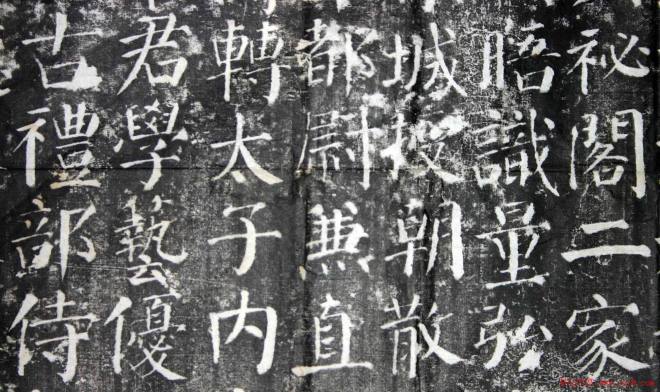 祕閣二家
晤識量弘
城授朝散
都尉兼直
轉太子内
君學藝優
古禮部侍